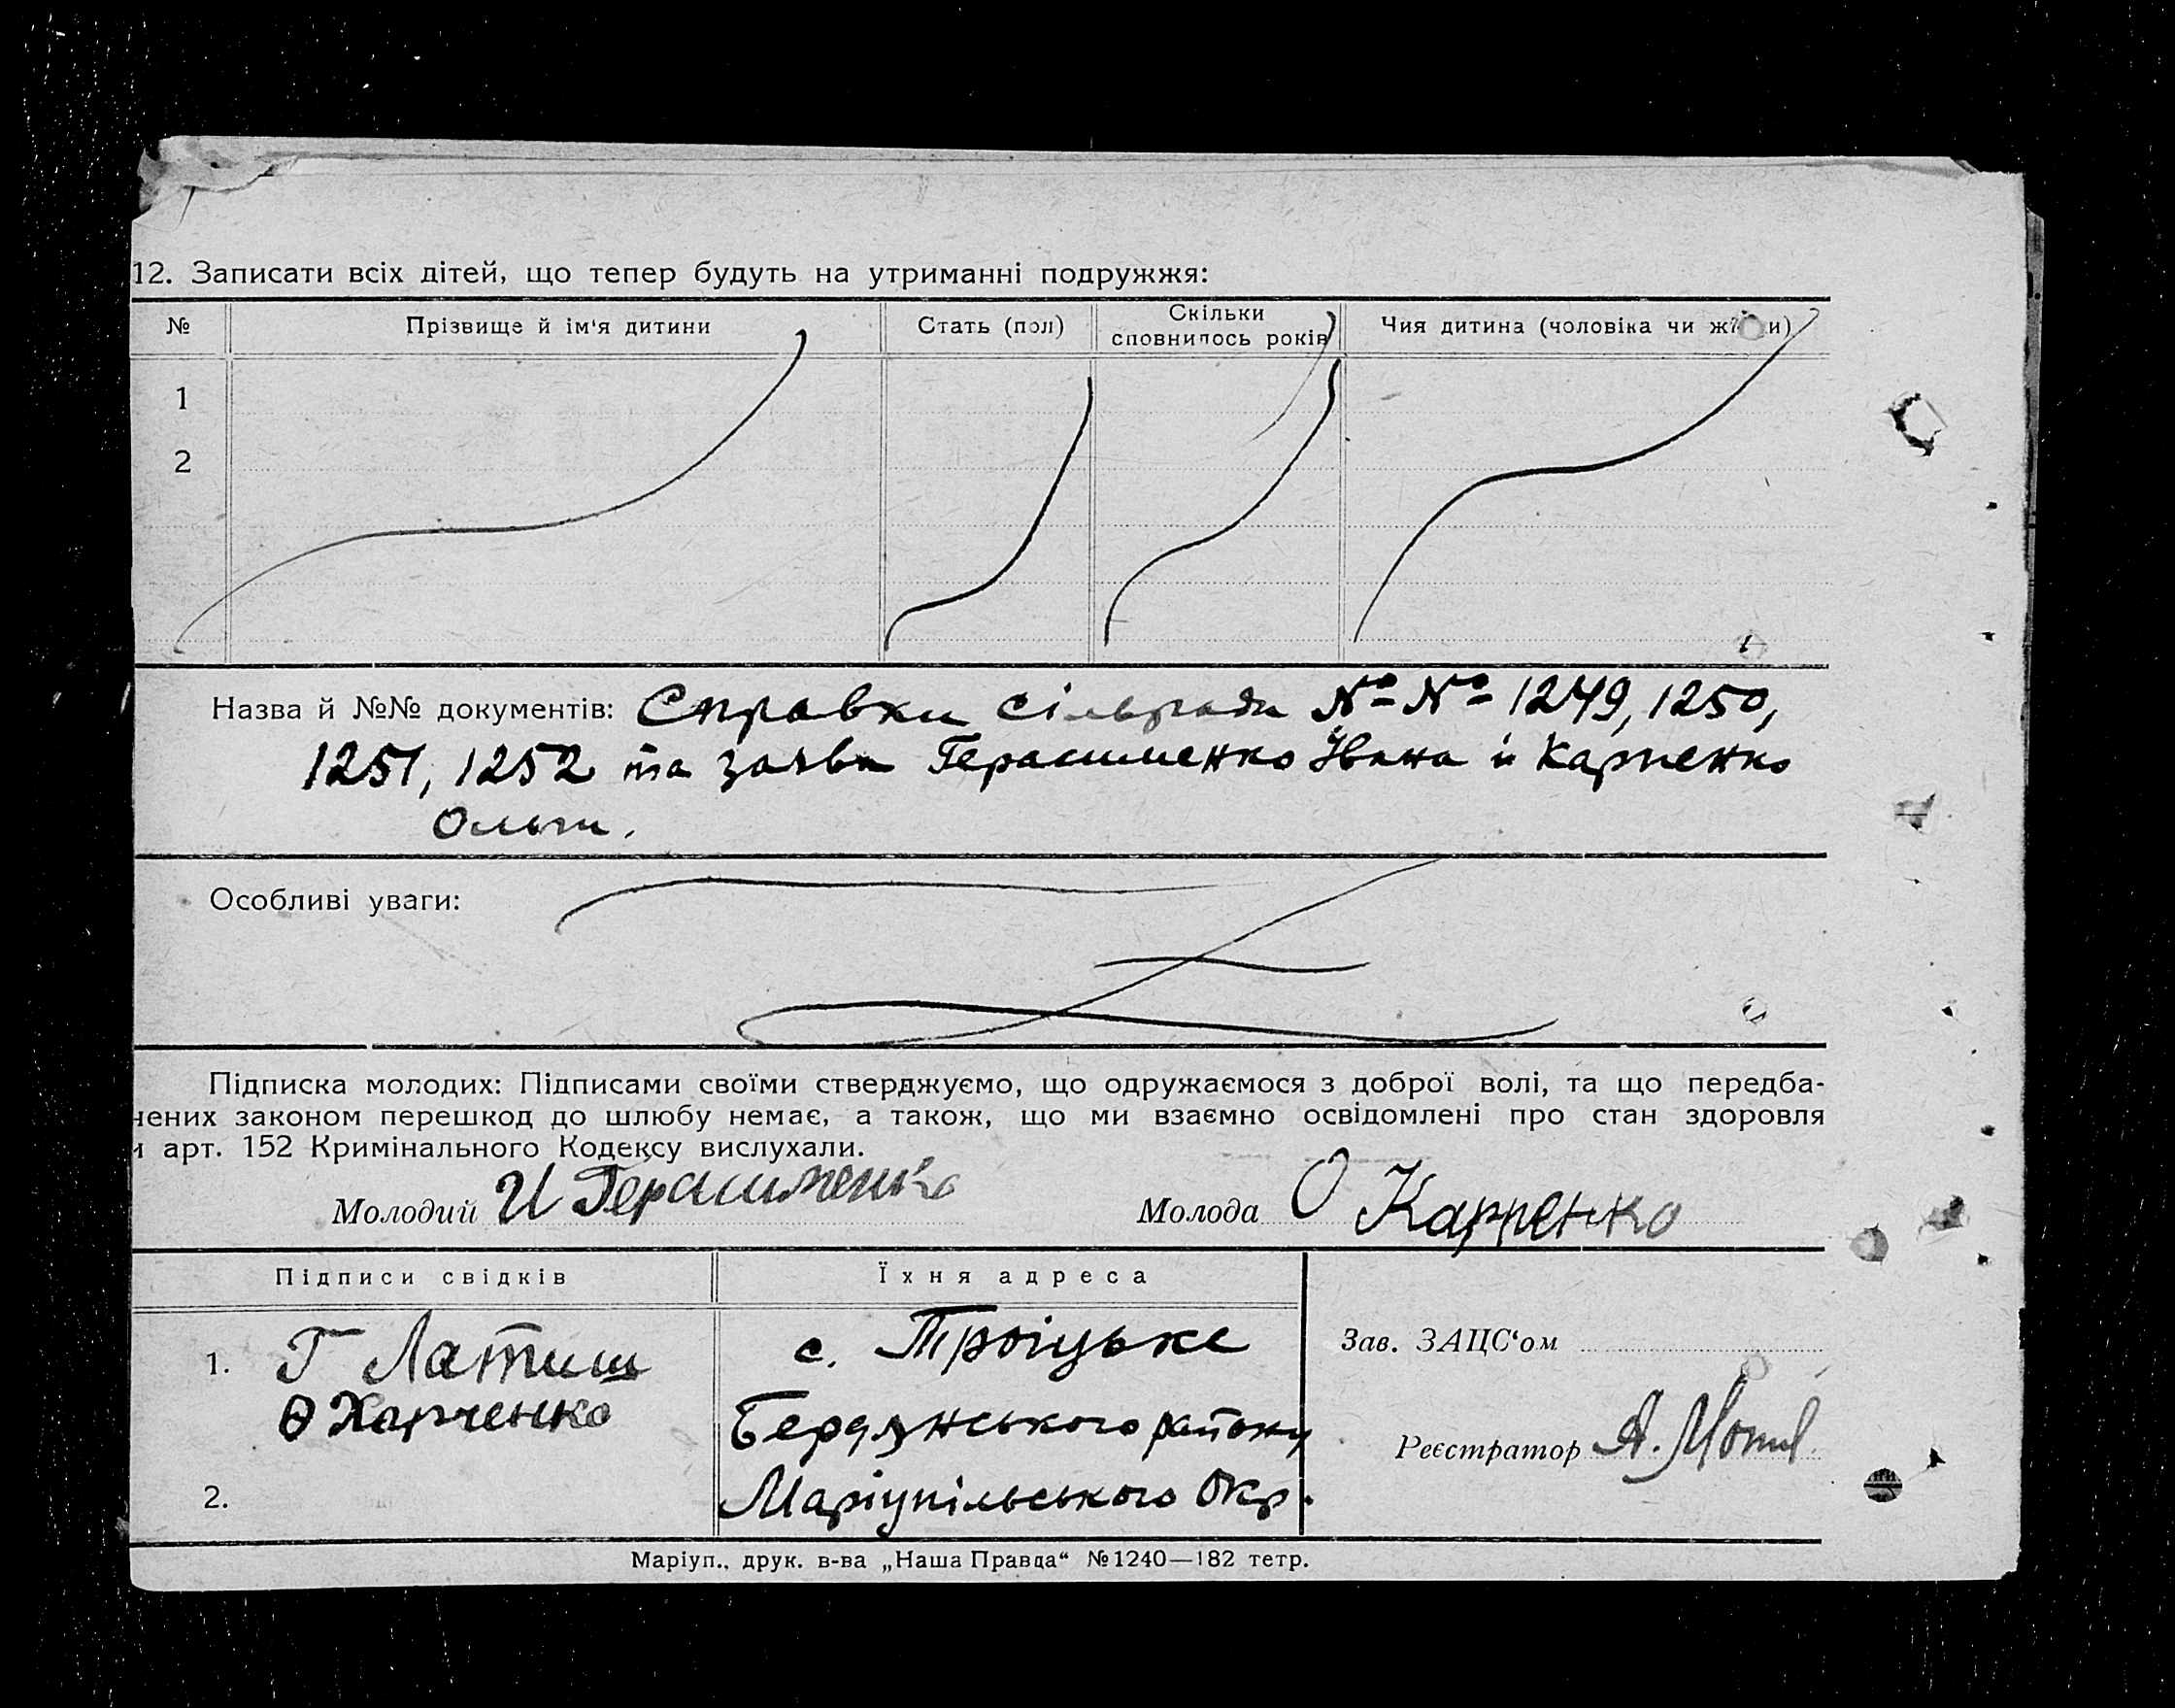 12. Записати всіх дітей, що тепер будуть на утриманні подружжя:
№ Прізвище й ім'я дитини Стать (пол) Скільки сповнилось років Чия дитина (чоловіка чи жінки)
1
2
Назва й №№ документів: Справки сільради №№ 1249, 1250,
1251, 1252 та заяви Герасименко Івана й Карпенко
Ольги.
Особливі уваги:
Підписка молодих: Підписами своїми стверджуємо, що одружаємося з доброї волі, та що передба-
чених законом перешкод до шлюбу немає, а також, що ми взаємно освідомлені про стан здоровля
й арт. 152 Кримінального Кодексу вислухали.
Молодий И Герасименко Молода О Карпенко
Підписи свідків Їхня адреса
1. Г Латиш с. Троіцьке Зав. ЗАЦС'ом
Ѳ Харченко Бердянського району Реєстратор А.
2. Маріупільського Окр.
Маріуп., друк. в-ва „Наша Правда“ № 1240—182 тетр.